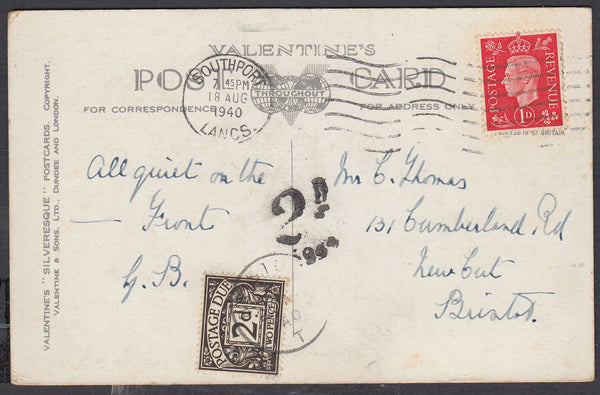 VALENTINE'S
POST CARD
THROUGHOUT
FOR CORRESPONDENCE
FOR ADDRESS ONLY
SOUTHPORT
7 45 PM
18 AUG
1940
LANCS.
POSTAGE
REVENUE
1D
PRINTED IN GT BRITAIN
VALENTINE'S "SILVERESQUE" POSTCARDS. COPYRIGHT.
VALENTINE & SONS, LTD., DUNDEE AND LONDON.
All quiet on the
— Front
G.B.
Mr C. Thomas
131 Cumberland Rd
New Cut
Bristol.
2D
POSTAGE DUE
2d
TWO PENCE